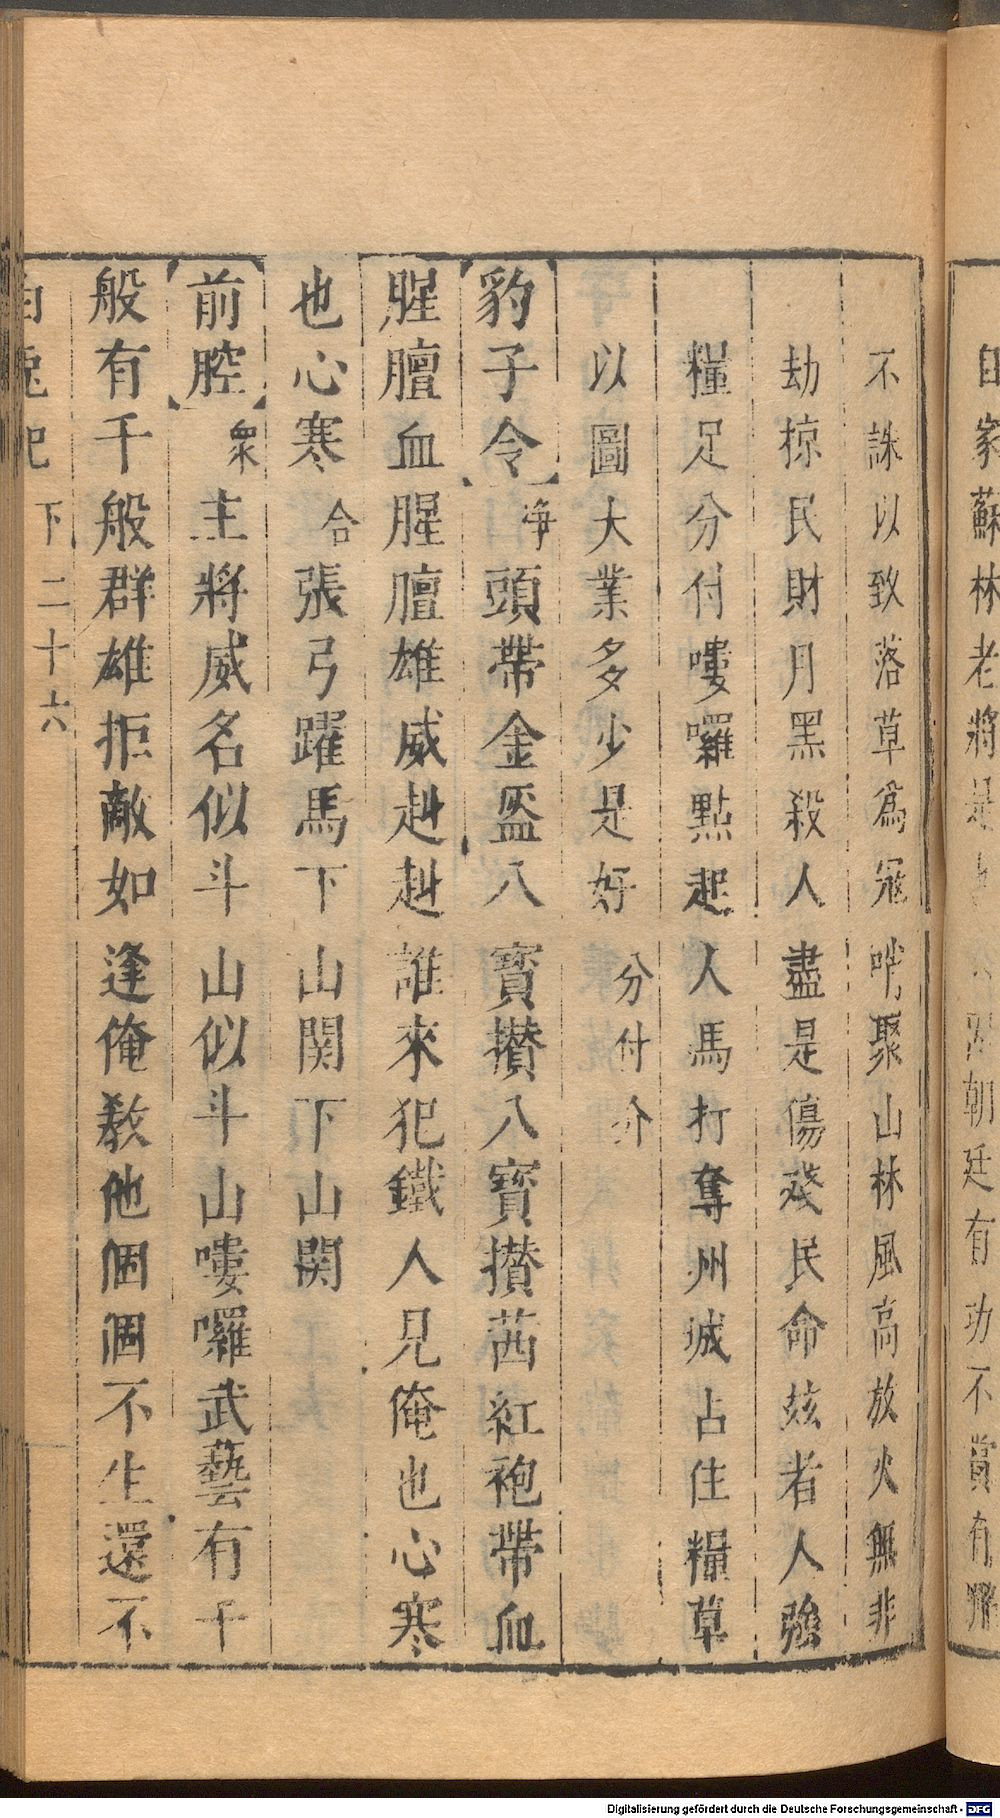 自家蘇林老將是也 朝廷有功不賞有
不誅以致落草爲冦哨聚山林風高放火無非
劫掠民財月黑殺人盡是傷殘民命玆者人強
糧足分付嘍囉點起人馬打奪州城占住糧草
以圖大業多少是好 分付介
豹子令 淨 頭帶金盔八寳攅八寳攅茜紅袍帶血
腥膻血腥膻雄威赳赳誰來犯鐵人見俺也心寒
也心寒 合 張弓躍馬下山関下山関
前腔 衆 主將威名似斗山似斗山嘍囉武藝有千
般有千般群雄拒敵如逢俺教他個個不生還不
白兎 下 二十六
Digitalisierung gefördert durch die Deutsche Forschungsgemeinschaft - DFG